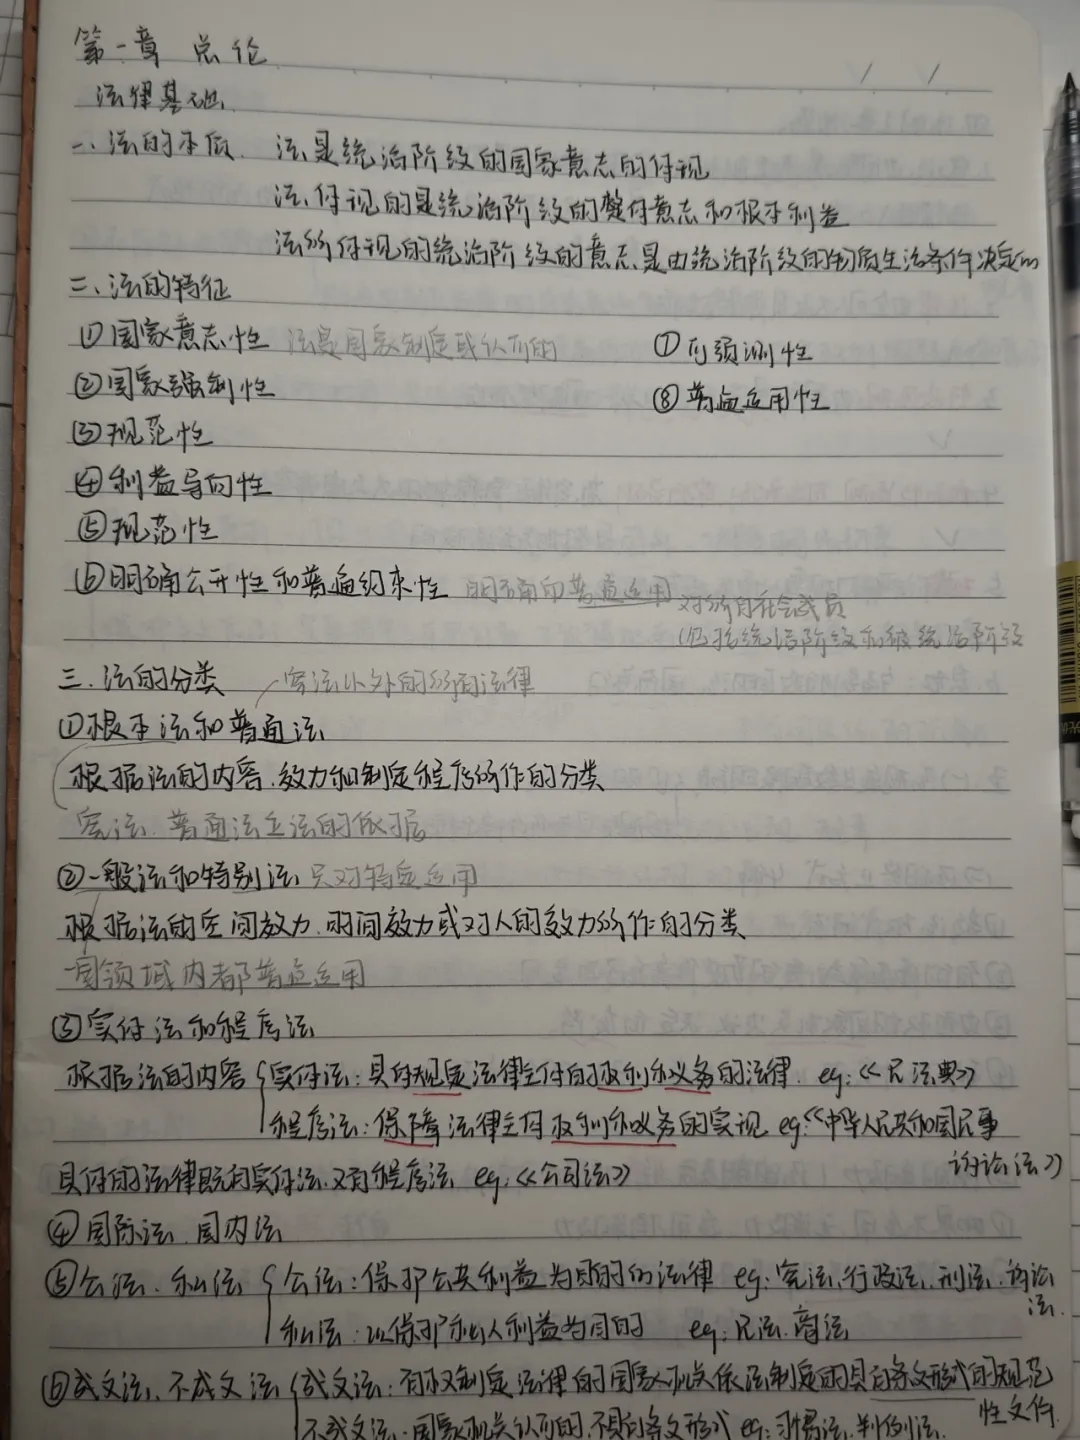 第一章 总论
法律基础
一、法的本质 法是统治阶级的国家意志的体现
法体现的是统治阶级的整体意志和根本利益
法所体现的统治阶级的意志是由统治阶级的物质生活条件决定的
二、法的特征
①国家意志性 法是国家制定或认可的
⑦可预测性
②国家强制性
⑧普遍适用性
③规范性
④利益导向性
⑤规范性
⑥明确公开性和普遍约束性 明确和普遍适用 对所有社会成员
(包括统治阶级和被统治阶级
三、法的分类 宪法以外的所有法律
①根本法和普通法
根据法的内容、效力和制定程序所作的分类
宪法、普通法立法的依据
②一般法和特别法 只对特定适用
根据法的空间效力、时间效力或对人的效力所作的分类
一国领域内都普遍适用
③实体法和程序法
根据法的内容 实体法:具体规定法律主体的权利和义务的法律 eg:《民法典》
程序法:保障法律主体权利和义务的实现 eg:《中华人民共和国民事
诉讼法》
具体的法律既有实体法、又有程序法 eg:《公司法》
④国际法 国内法
⑤公法、私法 公法:保护公共利益为目的的法律 eg:宪法、行政法、刑法、诉讼
法
私法:以保护私人利益为目的 eg:民法、商法
⑥成文法、不成文法 成文法:有权制定法律的国家机关依法制定的具有条文形式的规范
性文件
不成文法:国家机关认可的、不具有条文形式 eg:习惯法、判例法